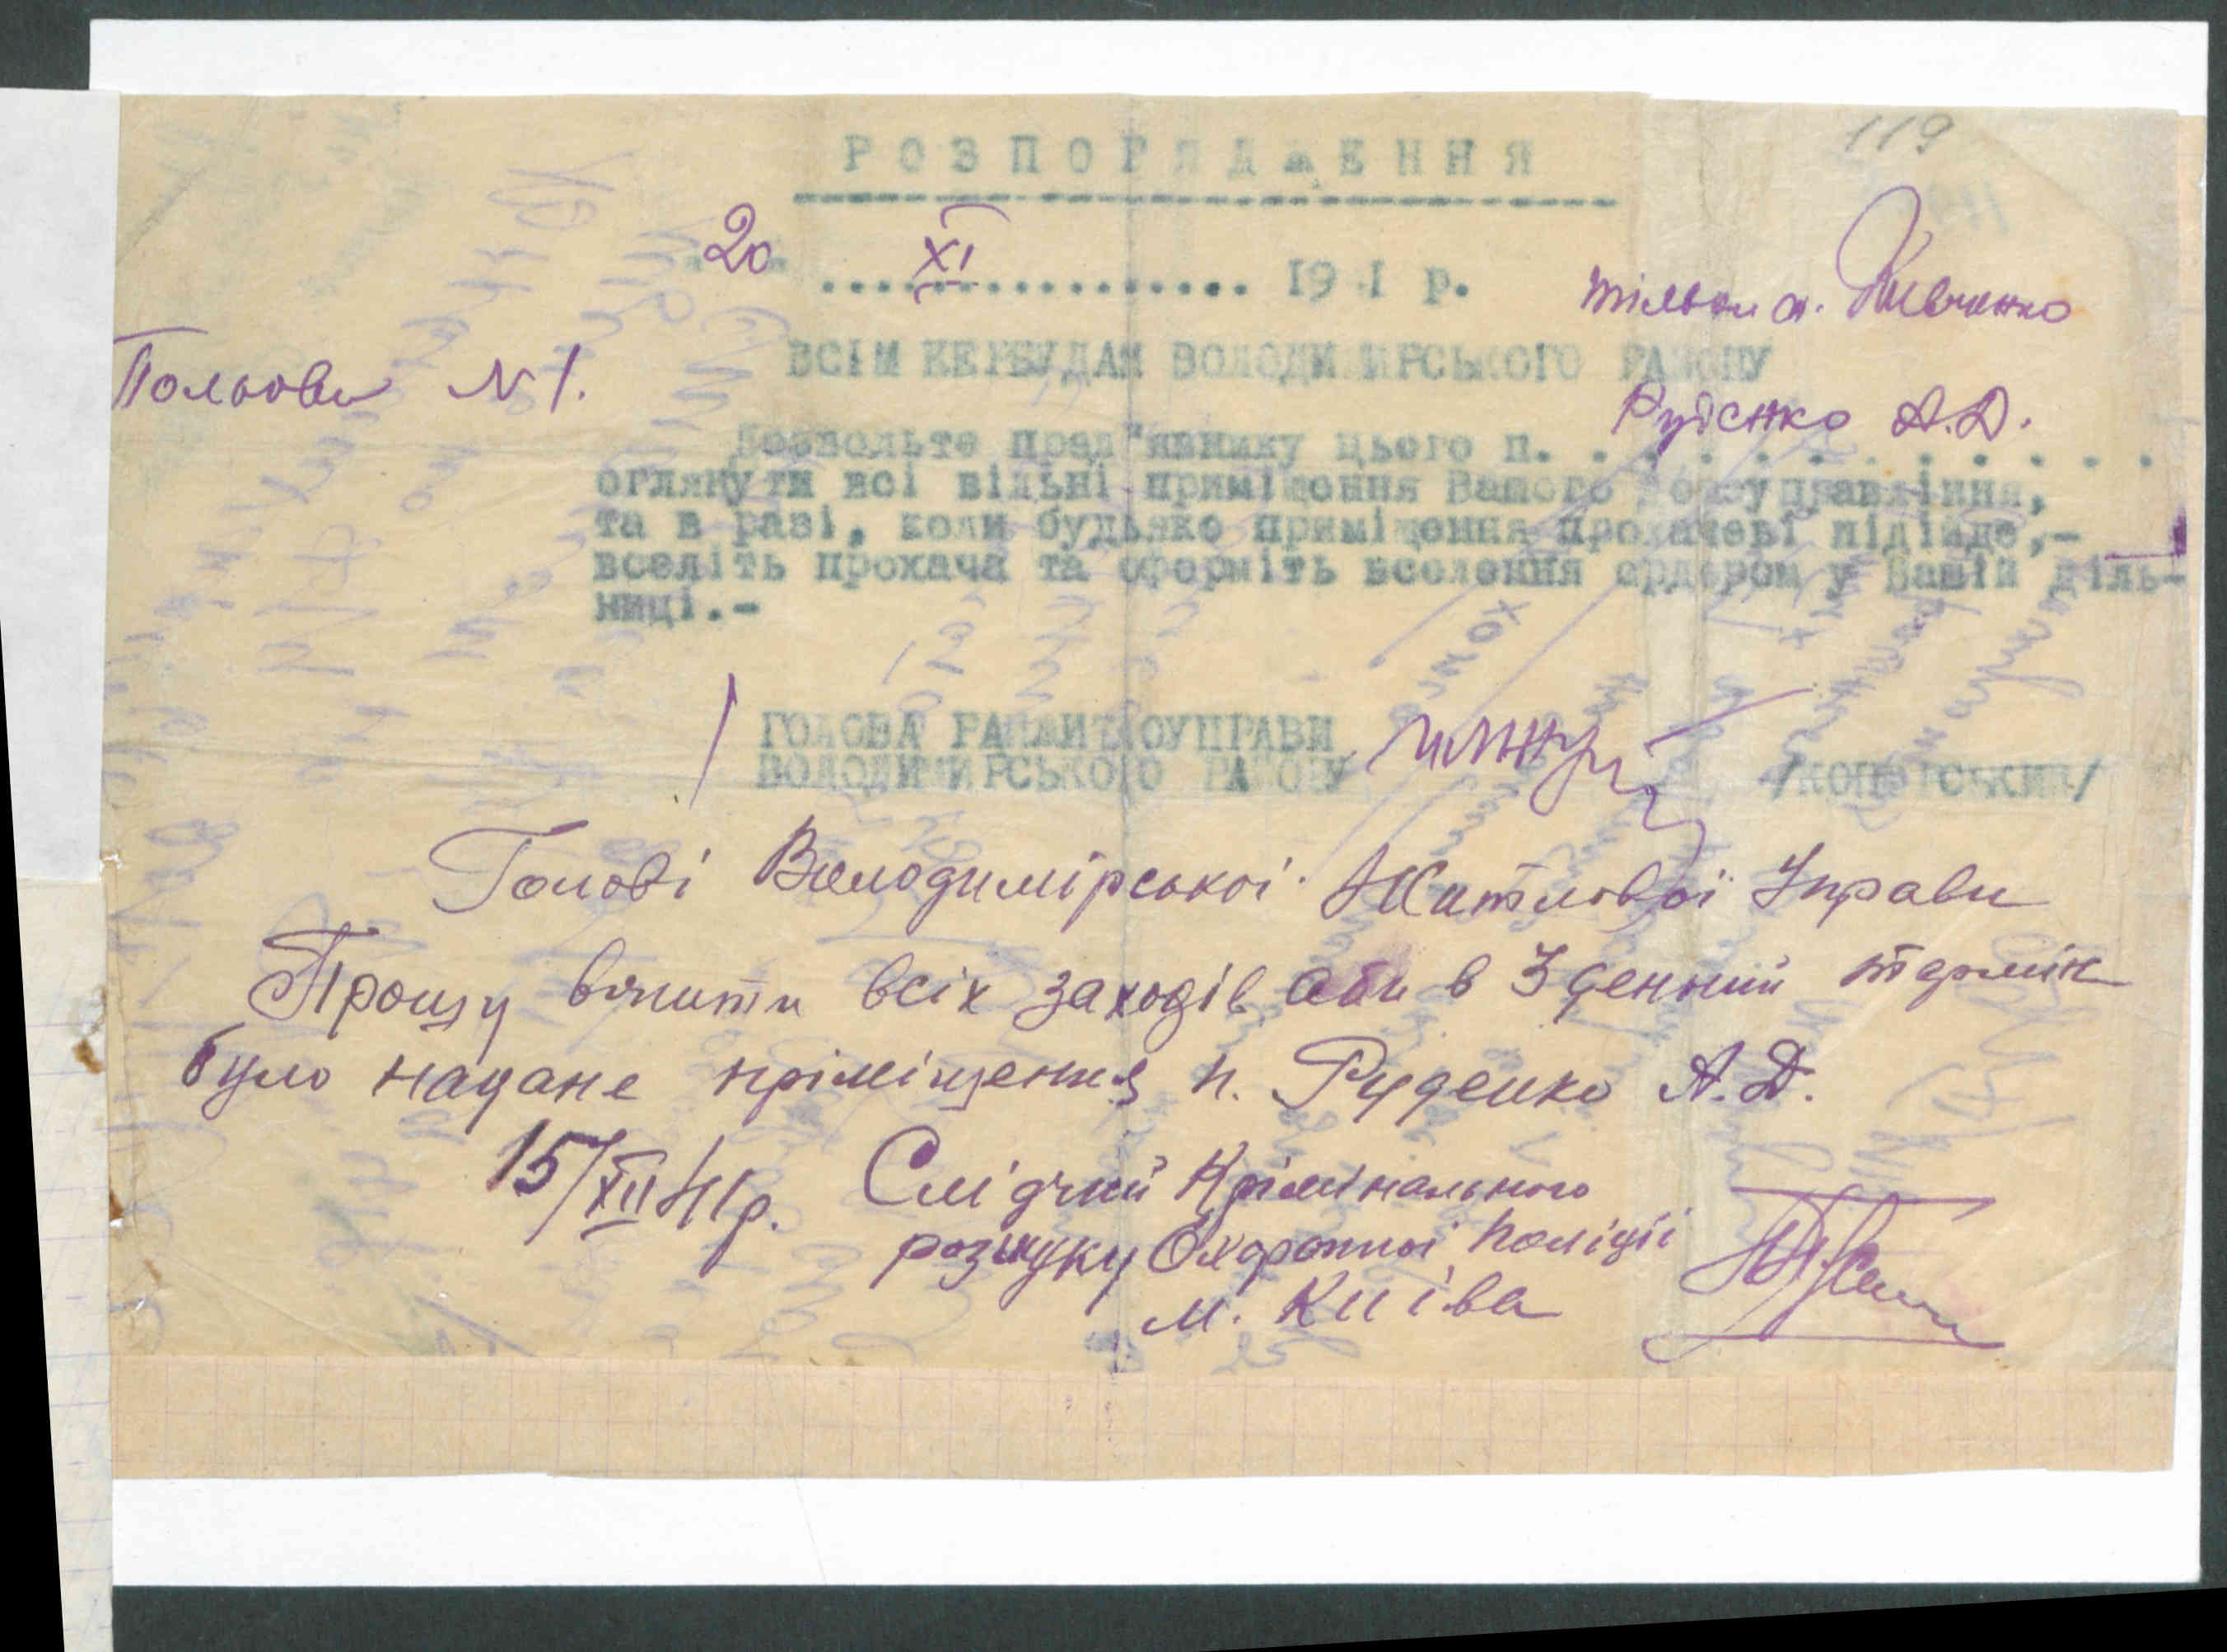 119
РОЗПОРЯДЖЕННЯ
20 XI 1941 р.
тільки
Польова №1.
ВСІМ КЕРБУДАМ ВОЛОДИМИРСЬКОГО РАЙОНУ
Руденко А.Д.
Дозвольте пред"явнику цього п. . . . . . . . . . . .
оглянути всі вільні приміщення Вашого домоуправління,
та в разі, коли будьяке приміщення прохачеві підійде,-
вселіть прохача та оформіть вселення ордером у Вашій діль-
ниці.-
ГОЛОВА РАЙЖИТЛОУПРАВИ
ВОЛОДИМИРСЬКОГО РАЙОНУ
Голові Володимірської Житлової Управи
Прошу вжити всіх заходів аби в 3 денний термін
було надане пріміщення п. Руденко А.Д.
15/XII 41р. Слідчий Крімінального
розшуку Охоронної Поліції
м. Київа